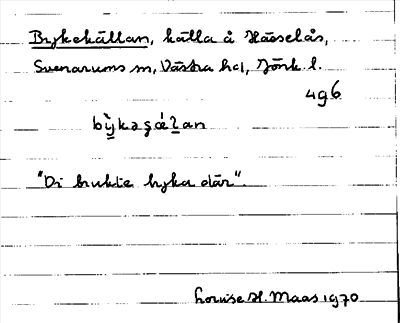 Bykekällan, källa å Hässelås,
Svenarums sn, Västra hd, Jönk. l.
4g6
"Di brukte byka där".
Louise H. Maas 1970